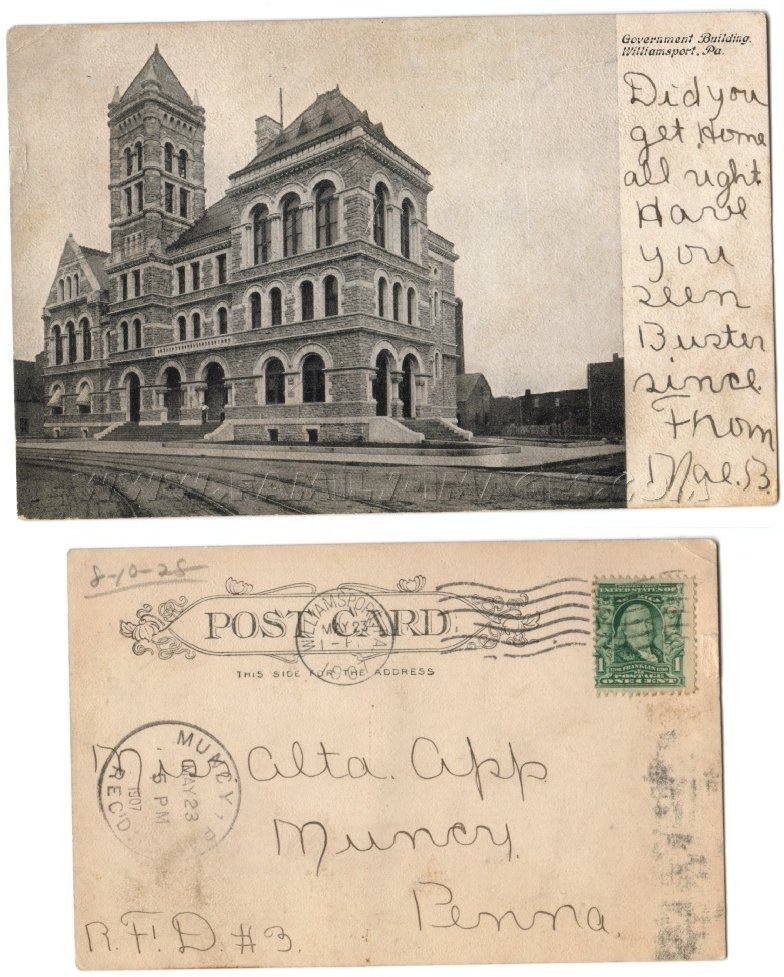 Government Building.
Williamsport, Pa.
Did you
get Home
all right
Have
you
seen
Buster
since
From
Mae. B.
WWW.FAMILYIMAGES.COM
8-10-28
POST CARD
THIS SIDE FOR THE ADDRESS
WILLIAMSPORT, PA.
MAY 23
UNITED STATES OF
1 FRANKLIN 1
POSTAGE
ONE CENT
MUNCY, P
MAY 23
5 PM
1907
REC'D.
Miss Alta. App
Muncy.
Penna.
R.F.D. #3.